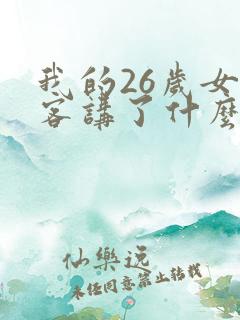 我的26歲女
客講了什麼
仙樂逸
未经同意禁止转载